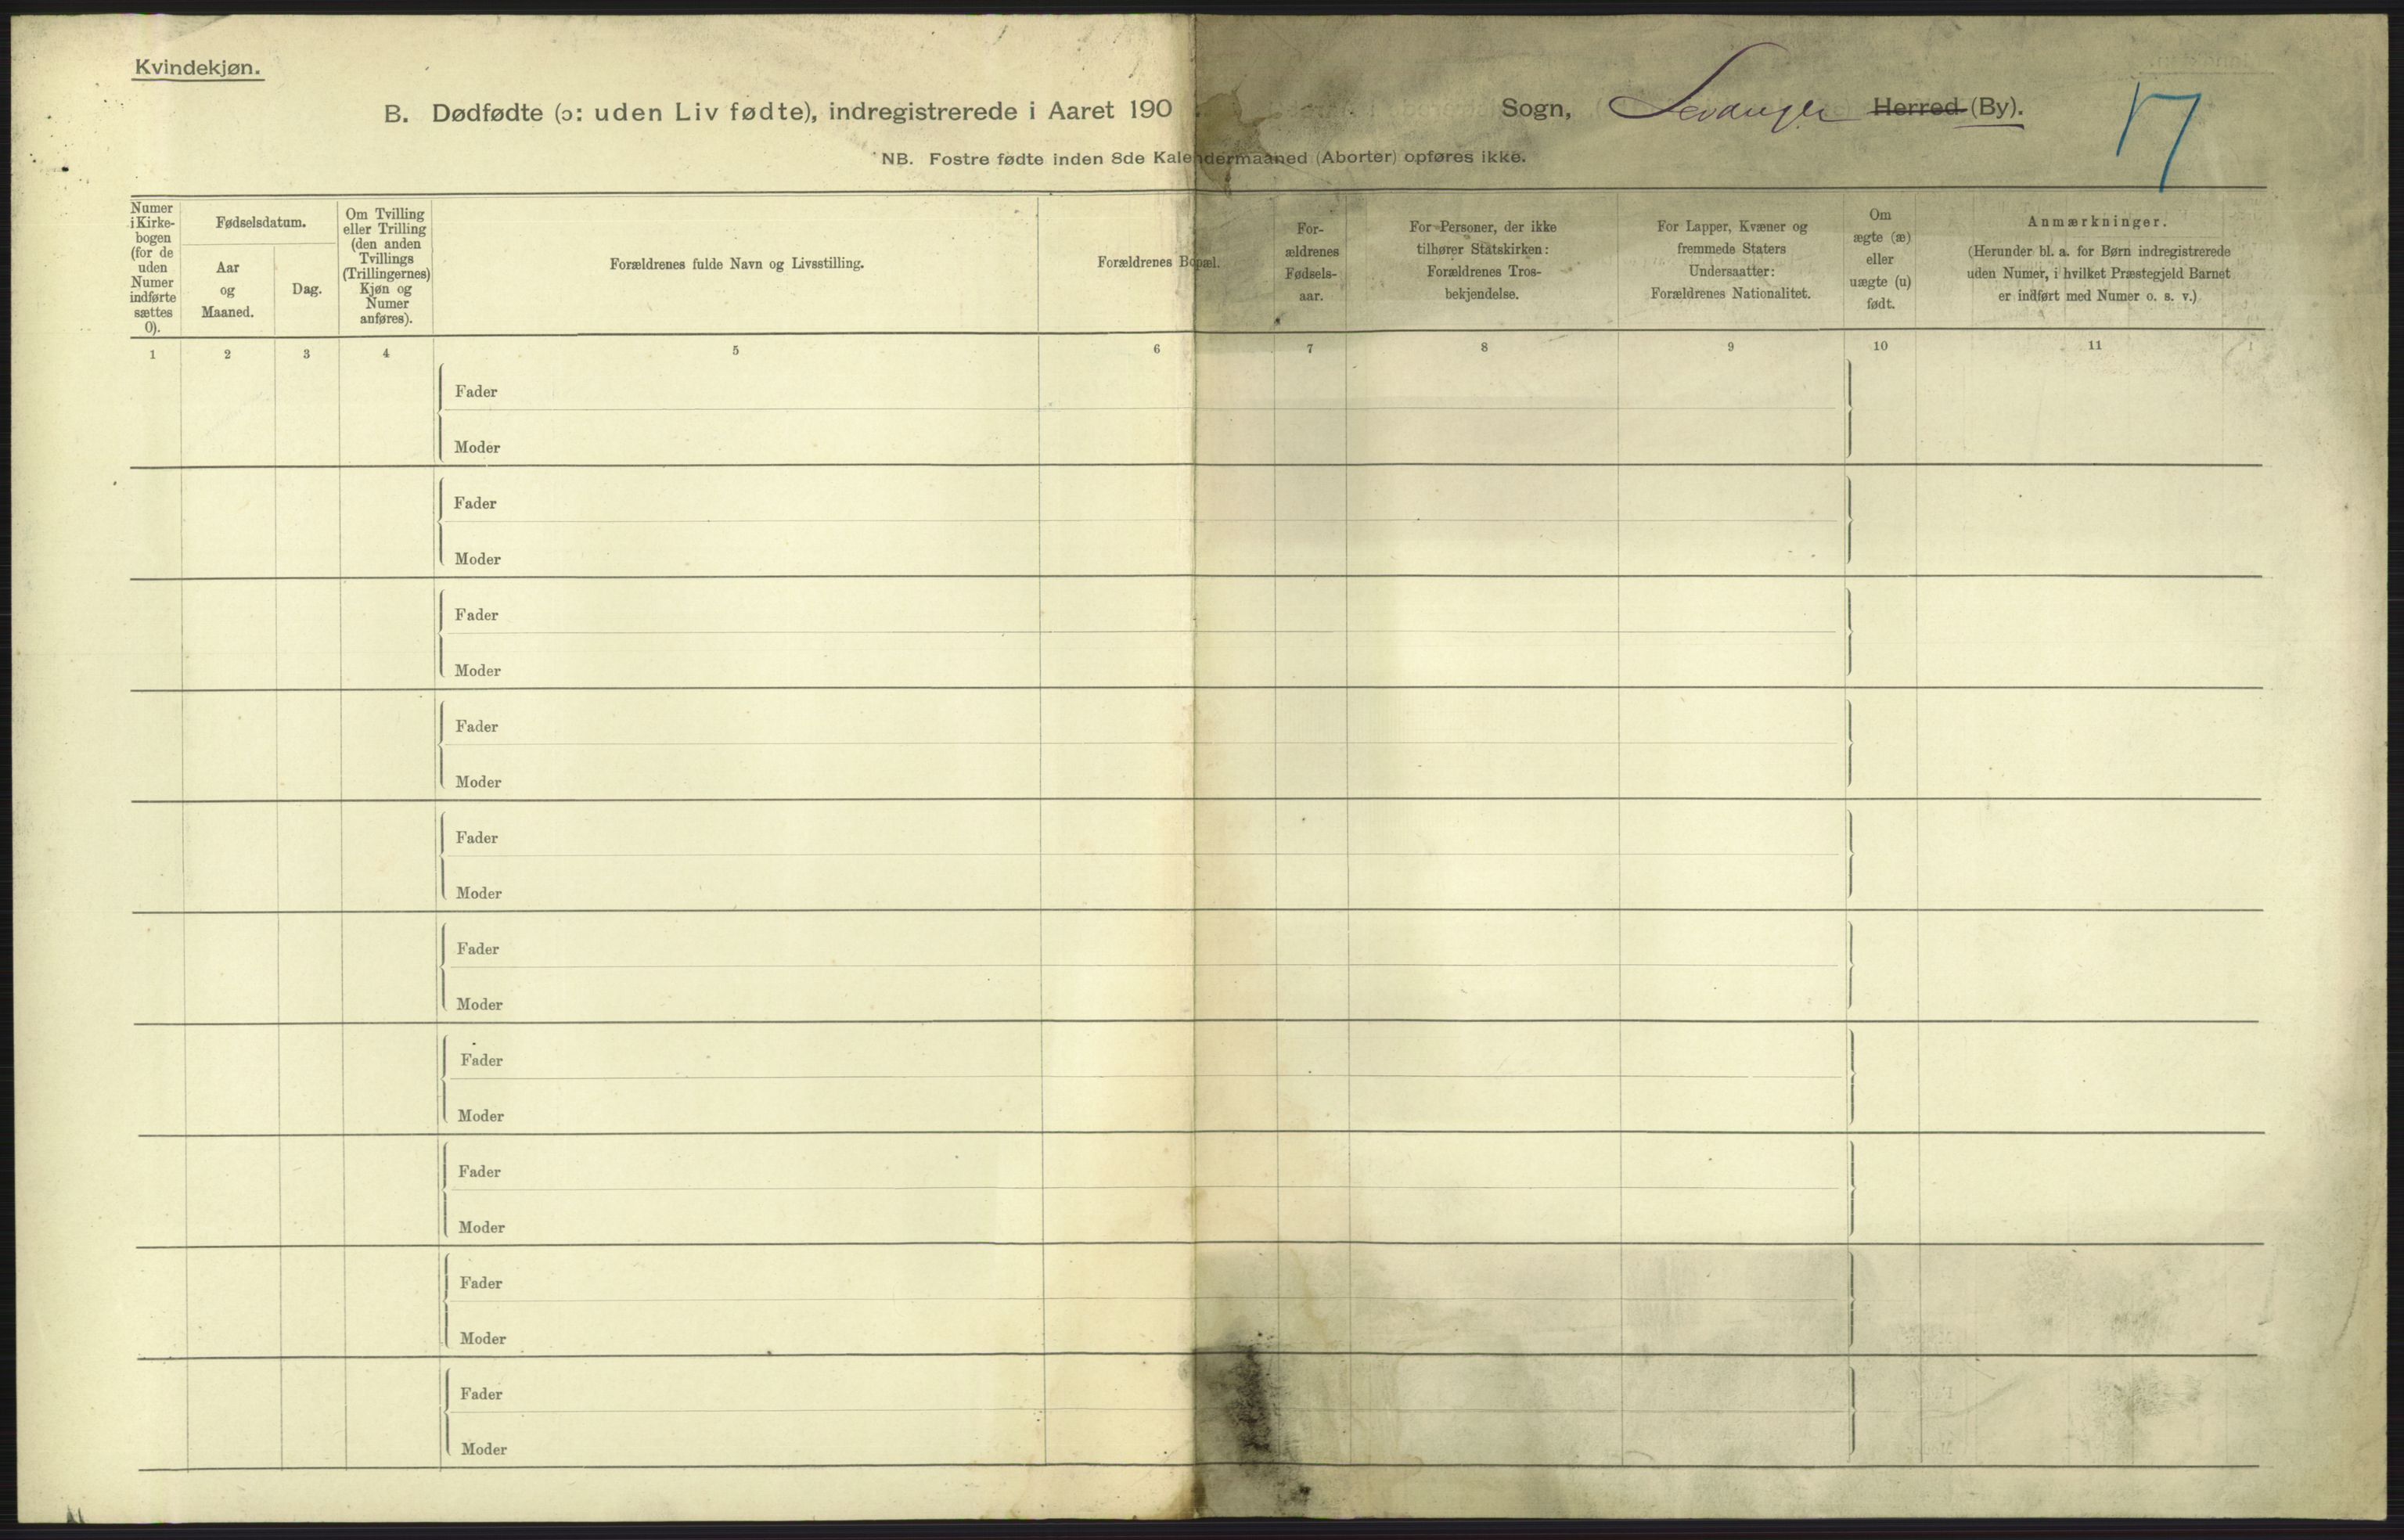 Kvindekjøn.
B. Dødfødte (ɔ: uden Liv fødte), indregistrerede i Aaret 190 Sogn, Levanger Herred (By).
17
NB. Fostre fødte inden 8de Kalendermaaned (Aborter) opføres ikke.
Numer
i Kirke-
bogen
(for de
uden
Numer
indførte
sættes
0).
Fødselsdatum.
Aar
og
Maaned.
Dag.
Om Tvilling
eller Trilling
(den anden
Tvillings
(Trillingernes)
Kjøn og
Numer
anføres).
Forældrenes fulde Navn og Livsstilling.
Forældrenes Bopæl.
For-
ældrenes
Fødsels-
aar.
For Personer, der ikke
tilhører Statskirken:
Forældrenes Tros-
bekjendelse.
For Lapper, Kvæner og
fremmede Staters
Undersaatter:
Forældrenes Nationalitet.
Om
ægte (æ)
eller
uægte (u)
født.
Anmærkninger.
(Herunder bl. a. for Børn indregistrerede
uden Numer, i hvilket Præstegjeld Barnet
er indført med Numer o. s. v.)
1 2 3 4 5 6 7 8 9 10 11
Fader
Moder
Fader
Moder
Fader
Moder
Fader
Moder
Fader
Moder
Fader
Moder
Fader
Moder
Fader
Moder
Fader
Moder
Fader
Moder